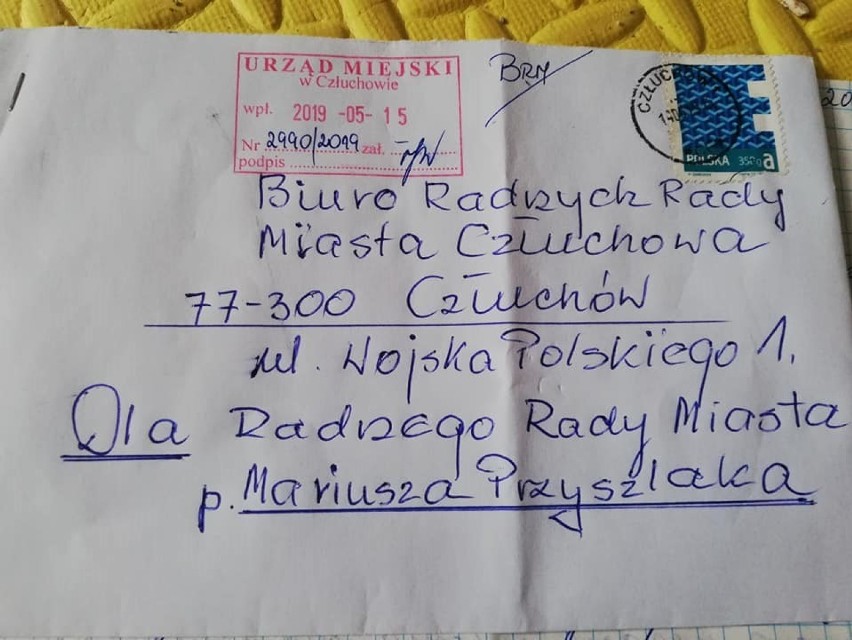 URZĄD MIEJSKI
w Człuchowie
wpł. 2019 -05- 15
Nr 2990/2019 zał.
podpis
BRM
CZŁUCHÓW
POLSKA 350g A
Biuro Radnych Rady
Miasta Człuchowa
77-300 Człuchów
ul. Wojska Polskiego 1.
Dla Radnego Rady Miasta
p. Mariusza Przyszlaka
20